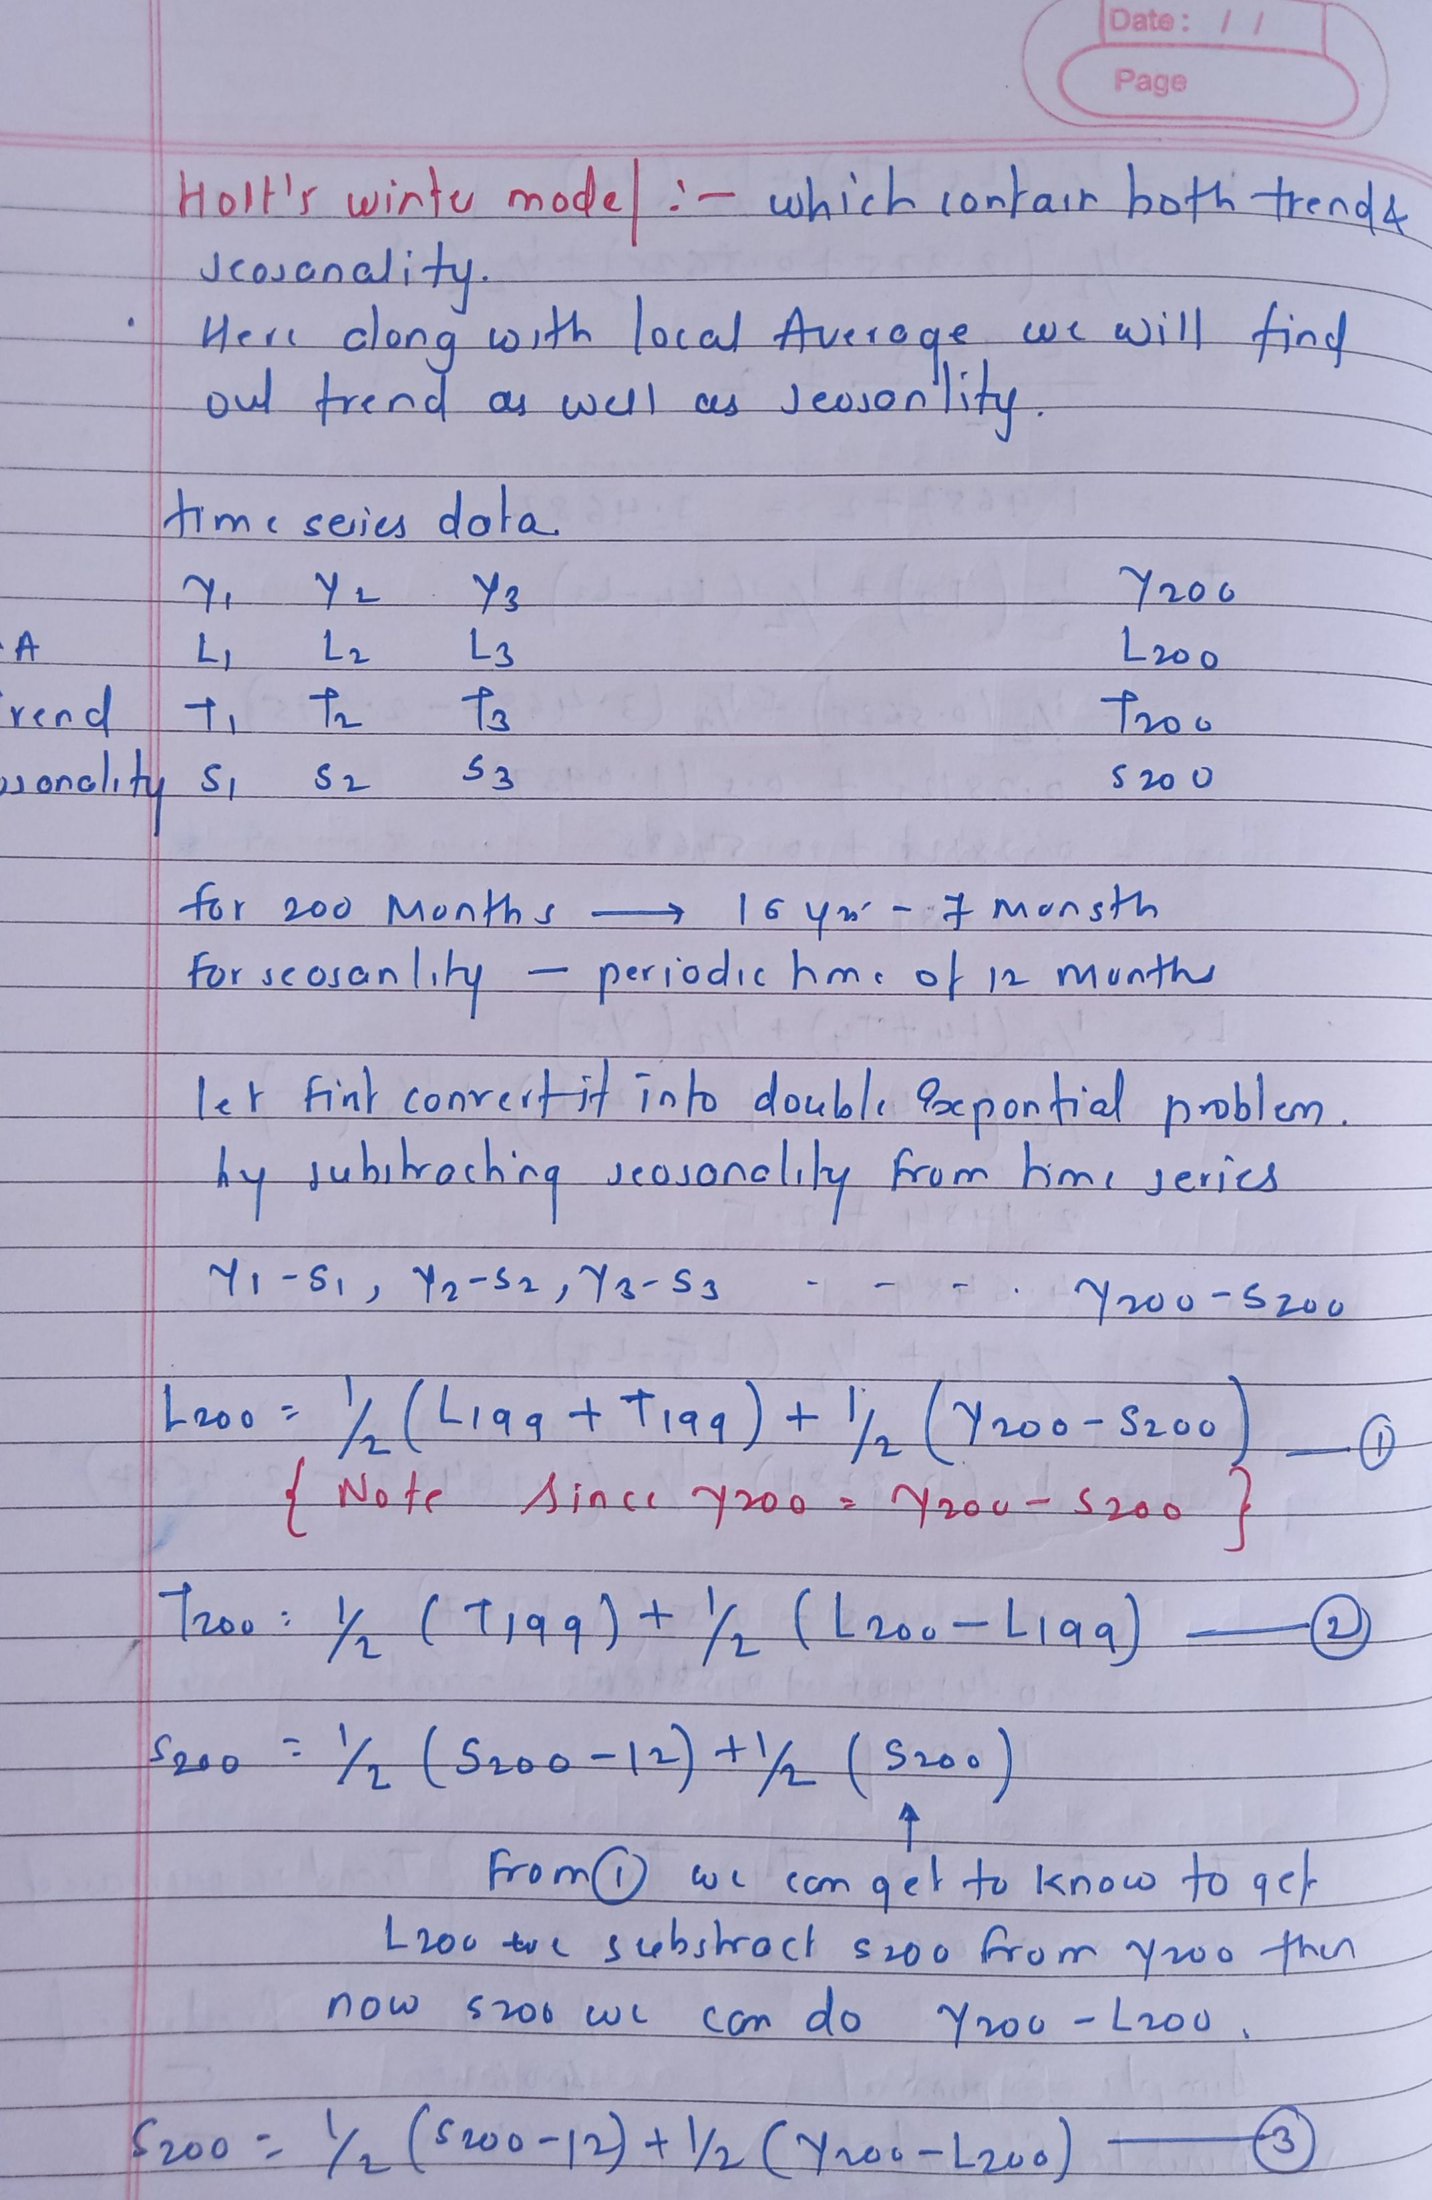 Date: / /
Page
Holt's winter model :- which contain both trend &
seosonality.
Here along with local Average we will find
out trend as well as seosonlity.
time series data
Y1 Y2 Y3 Y200
A L1 L2 L3 L200
rend T1 T2 T3 T200
sonality S1 S2 S3 S200
for 200 Months → 16 yrs - 7 monsth
for seosanlity - periodic time of 12 months
let first convert it into double Expontial problem.
by substracting seosonality from time series
Y1-S1, Y2-S2, Y3-S3 . - - . Y200-S200
L200 = 1/2 (L199 + T199) + 1/2 (Y200-S200) — ①
{ Note since Y200 = Y200 - S200 }
T200 = 1/2 (T199) + 1/2 (L200 - L199) — ②
S200 = 1/2 (S200-12) + 1/2 (S200)
↑
From ① we can get to know to get
L200 we substract S200 from Y200 then
now S200 we can do Y200 - L200.
S200 = 1/2 (S200-12) + 1/2 (Y200-L200) — ③